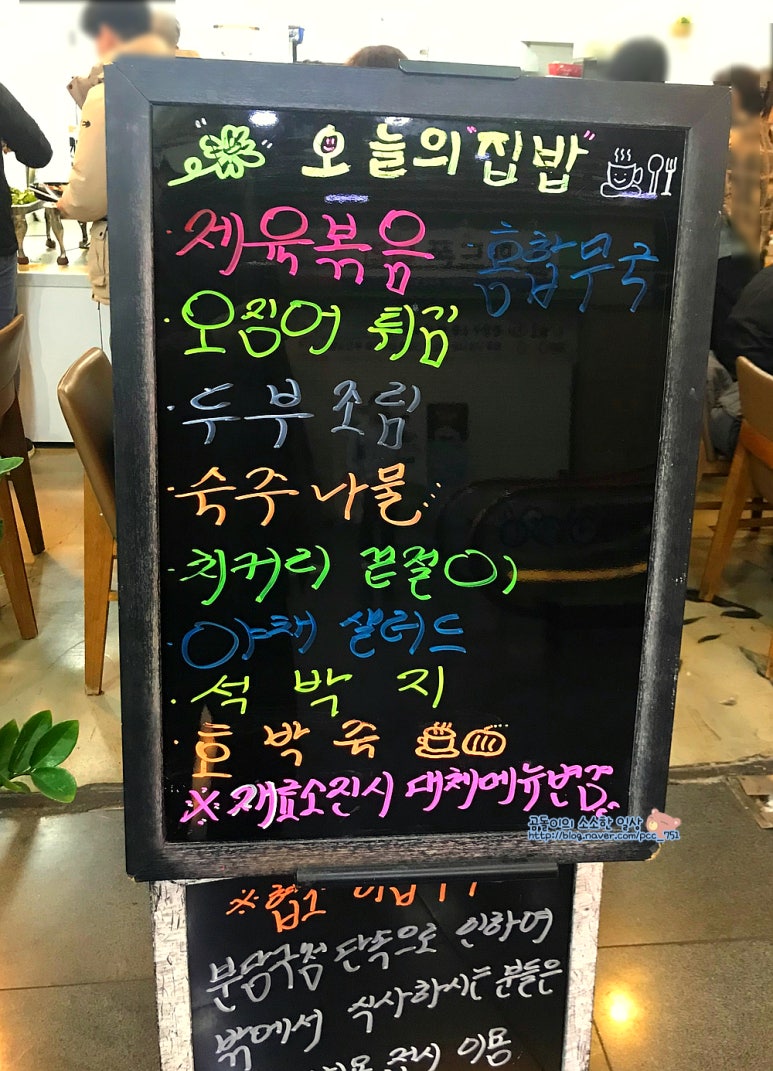 오늘의 "집밥"
· 제육볶음 · 홍합무국
· 오징어 튀김
· 두부 조림
· 숙주 나물
· 치커리 겉절이
· 야채 샐러드
· 석박지
· 호박죽
※ 재료소진시 대체메뉴변경
곰돌이의 소소한 일상
http://blog.naver.com/pcc_751
※
분당구청 단속으로 인하여
밖에서 식사하시는 분들은
이용